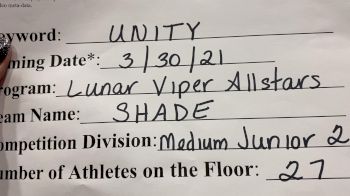 eyword: UNITY
ming Date*: 3/30/21
rogram: Lunar Viper Allstars
eam Name: SHADE
ompetition Division: Medium Junior 2
umber of Athletes on the Floor: 27